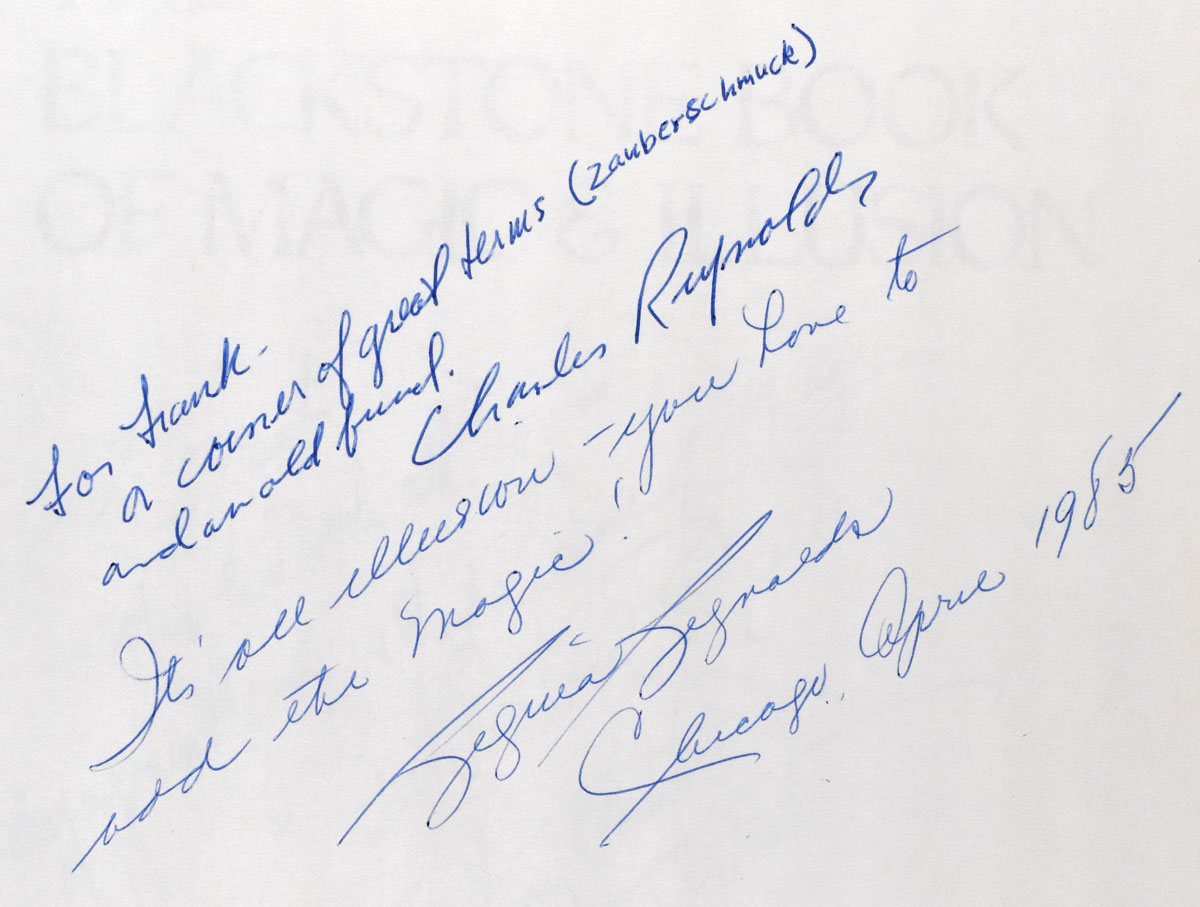 THE
BLACKSTONE BOOK
OF MAGIC & ILLUSION
For Frank-
a coiner of great terms (zauberschmuck)
and an old friend.
Charles Reynolds
It's all illusion - you have to
add the magic!
Regina Reynolds
Chicago, April 1985